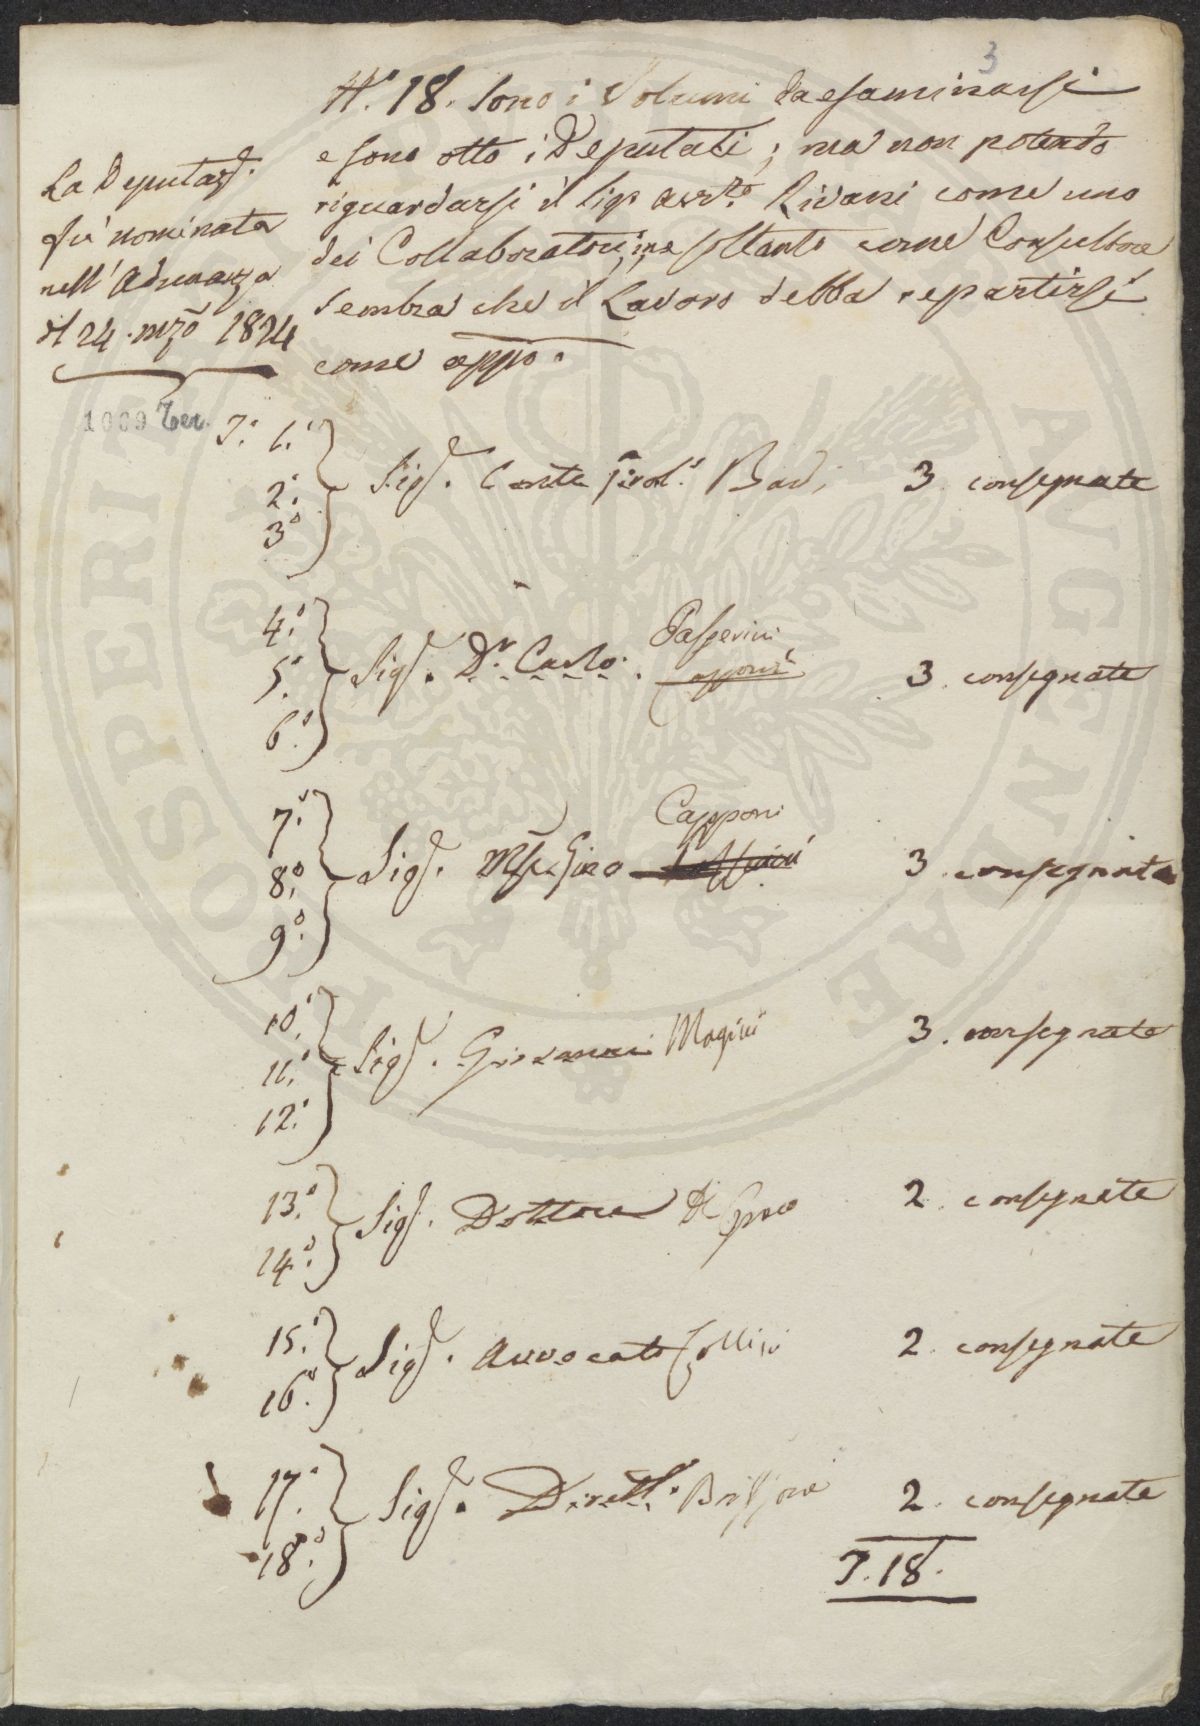 3
N.° 18. Sono i Volumi da esaminarsi
e sono otto i Deputati; ma non potendo
riguardarsi il Sig.r Avv.to Rivani come uno
dei Collaboratori, ma soltanto come Consultore
Sembra che il Lavoro debba repartirsi
come app.o
La Deputaz.e
fu nominata
nell' Adunanza
del 24. mzo 1824
1009 Ter.
T.° 1.°
2.°
3.°
Sig.r Conte Girol.° Bardi
3 consegnate
4.°
5.°
6.°
Sig.r D.r Carlo Passerini
3. consegnate
7.°
8.°
9.°
Sig.r Mse. Gino Capponi
3. consegnate
10.°
11.°
12.°
Sig.r Giovanni Magini
3. consegnate
13.°
14.°
Sig.r Dottore Del Greco
2. consegnate
15.°
16.°
Sig.r Avvocato Collini
2. consegnate
17.°
18.°
Sig.r Dirett.e
2. consegnate
T. 18.
PROSPERITATI AUGENDAE